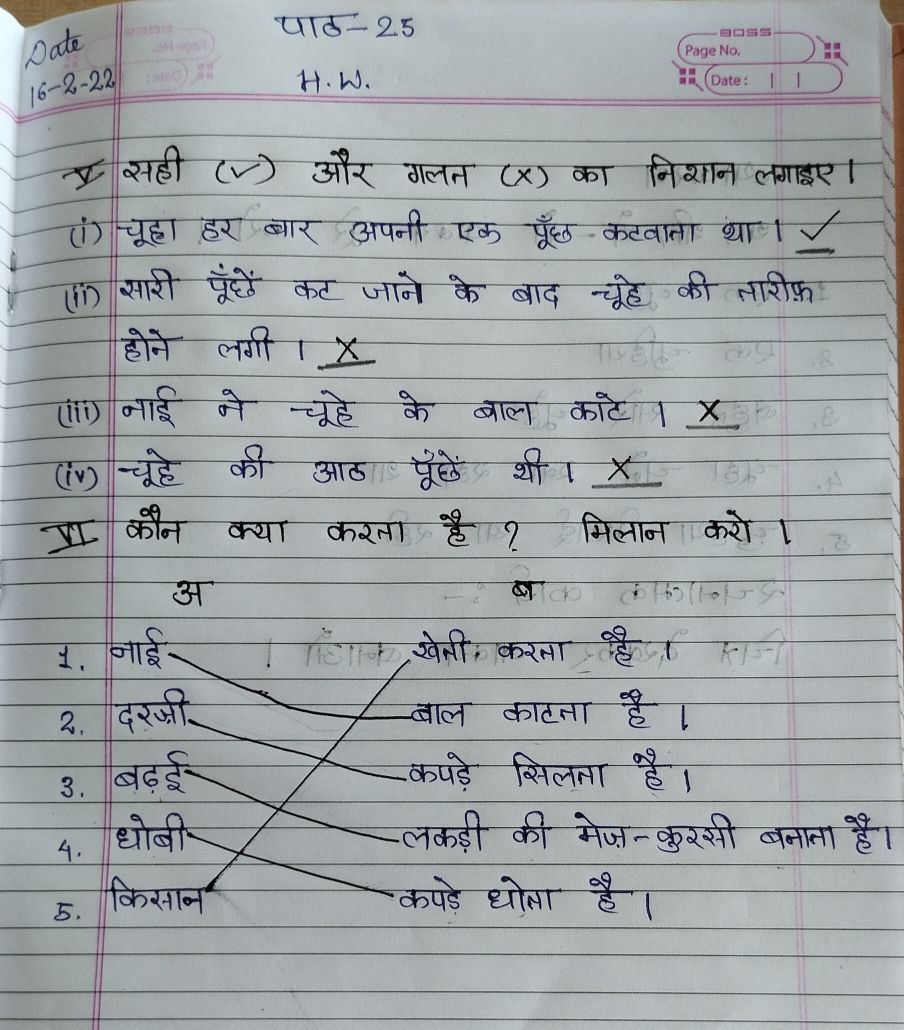 Date
16-2-22
पाठ-25
H.W.
BOSS
Page No.
Date:
V सही (✓) और गलत (x) का निशान लगाइए।
(i) चूहा हर बार अपनी एक पूँछ कटवाता था। ✓
(ii) सारी पूँछें कट जाने के बाद चूहे की तारीफ़
होने लगी । x
(iii) नाई ने चूहे के बाल काटे । x
(iv) चूहे की आठ पूँछें थी । x
VI कौन क्या करता है ? मिलान करो ।
अ ब
1. नाई खेती करता है ।
2. दरज़ी बाल काटता है ।
3. बढ़ई कपड़े सिलता है ।
4. धोबी लकड़ी की मेज़-कुरसी बनाता है।
5. किसान कपड़े धोता है ।